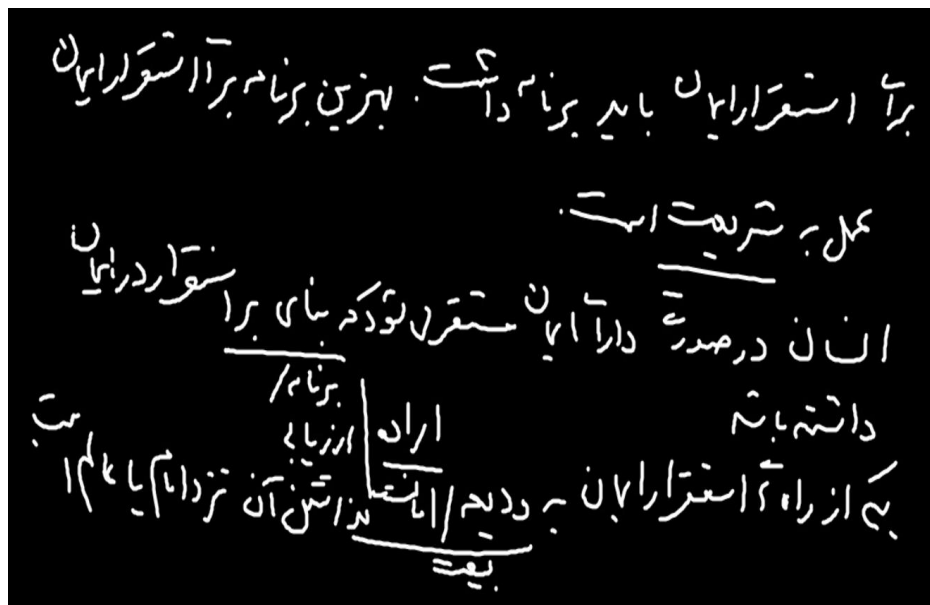 برای استقرار ایمان باید برنامه داشت. بهترین برنامه برای استقرار ایمان
عمل به شریعت است.
انسان در صورتی دارای ایمان مستقر می شود که بنای بر استقرار در ایمان
داشته باشد
برنامه/
اراده
ارزیابی
یکی از راه های استقرار ایمان به ودیعه/امانت گذاشتن آن نزد امام یا عالم است
بیعت